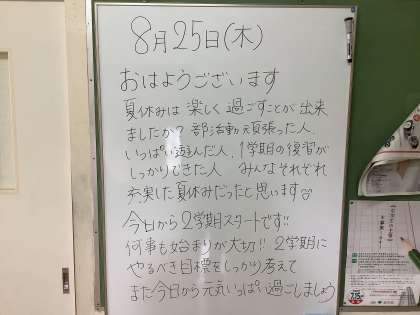 8月25日(木)
おはようございます
夏休みは楽しく過ごすことが出来
ましたか?部活動頑張った人、
いっぱい遊んだ人、1学期の復習が
しっかりできた人 みんなそれぞれ
充実した夏休みだったと思います
今日から2学期スタートです!!
何事も始まりが大切!!2学期に
やるべき目標をしっかり考えて
また今日から元気いっぱい過ごしましょう